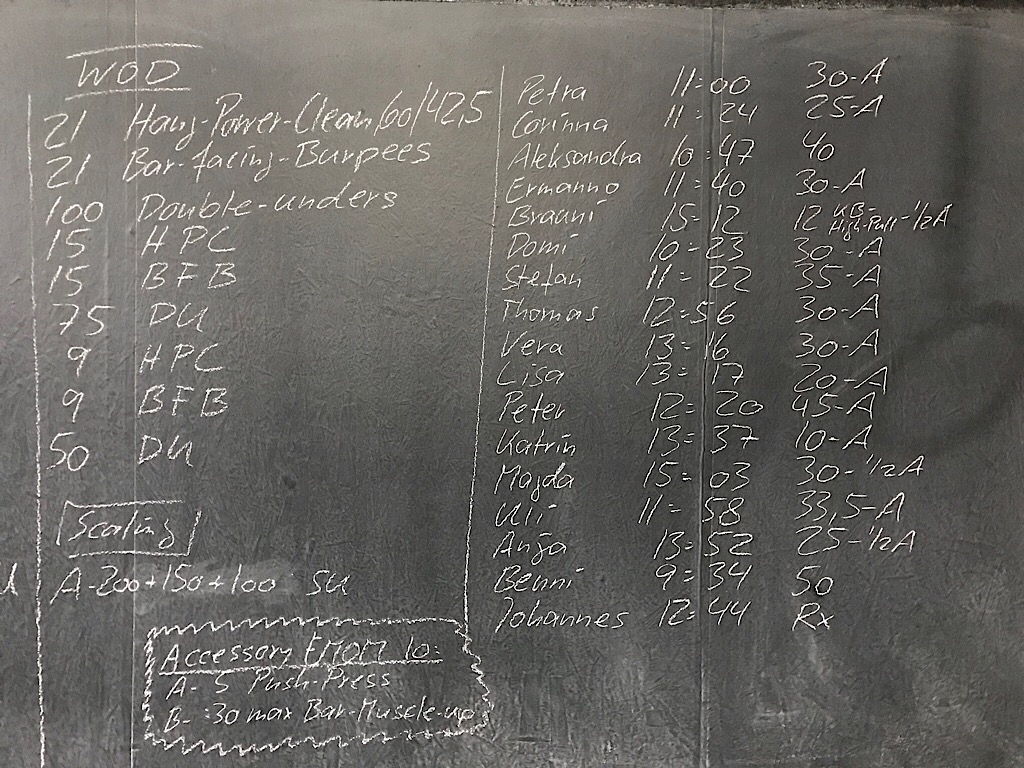 WOD
21 Hang-Power-Clean, 60/42,5
21 Bar-facing-Burpees
100 Double-unders
15 HPC
15 BFB
75 DU
9 HPC
9 BFB
50 DU
Scaling
A-200+150+100 SU
Accessory EMOM 10:
A- 5 Push-Press
B- :30 max Bar-Muscle-up
Petra 11:00 30-A
Corinna 11:24 25-A
Aleksandra 10:47 40
Ermanno 11:40 30-A
Brauni 15:12 12 KB-High-Pull-1/2A
Domi 10:23 30-A
Stefan 11:22 35-A
Thomas 12:56 30-A
Vera 13:16 30-A
Lisa 13:17 20-A
Peter 12:20 45-A
Katrin 13:37 10-A
Magda 15:03 30-1/2A
Ulli 11:58 33,5-A
Anja 13:52 25-1/2A
Benni 9:34 50
Johannes 12:44 Rx